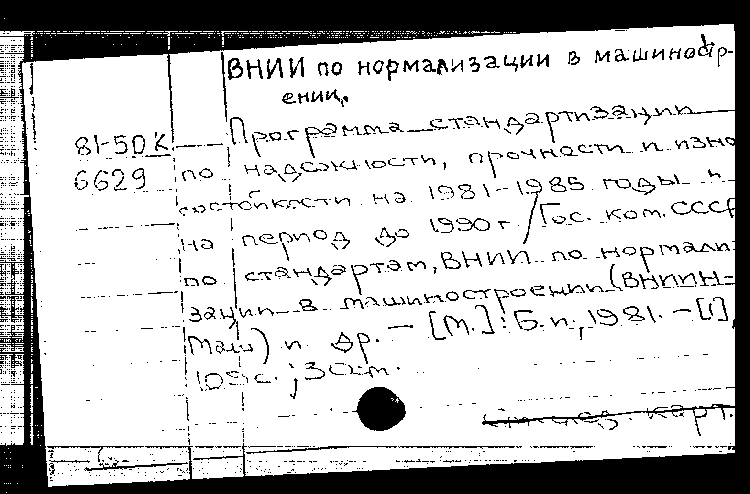 ВНИИ по нормализации в машиностр-
ении.
81-50К Программа стандартизации
6629 по надежности, прочности и изно
состойкости на 1981-1985 годы и
на период до 1990 г. / Гос. ком. СССР
по стандартам, ВНИИ по нормали-
зации в машиностроении (ВНИИН-
Маш) и др. — [М.]: Б.и., 1981. — [1],
109 с.; 30 см.
См. след. карт.